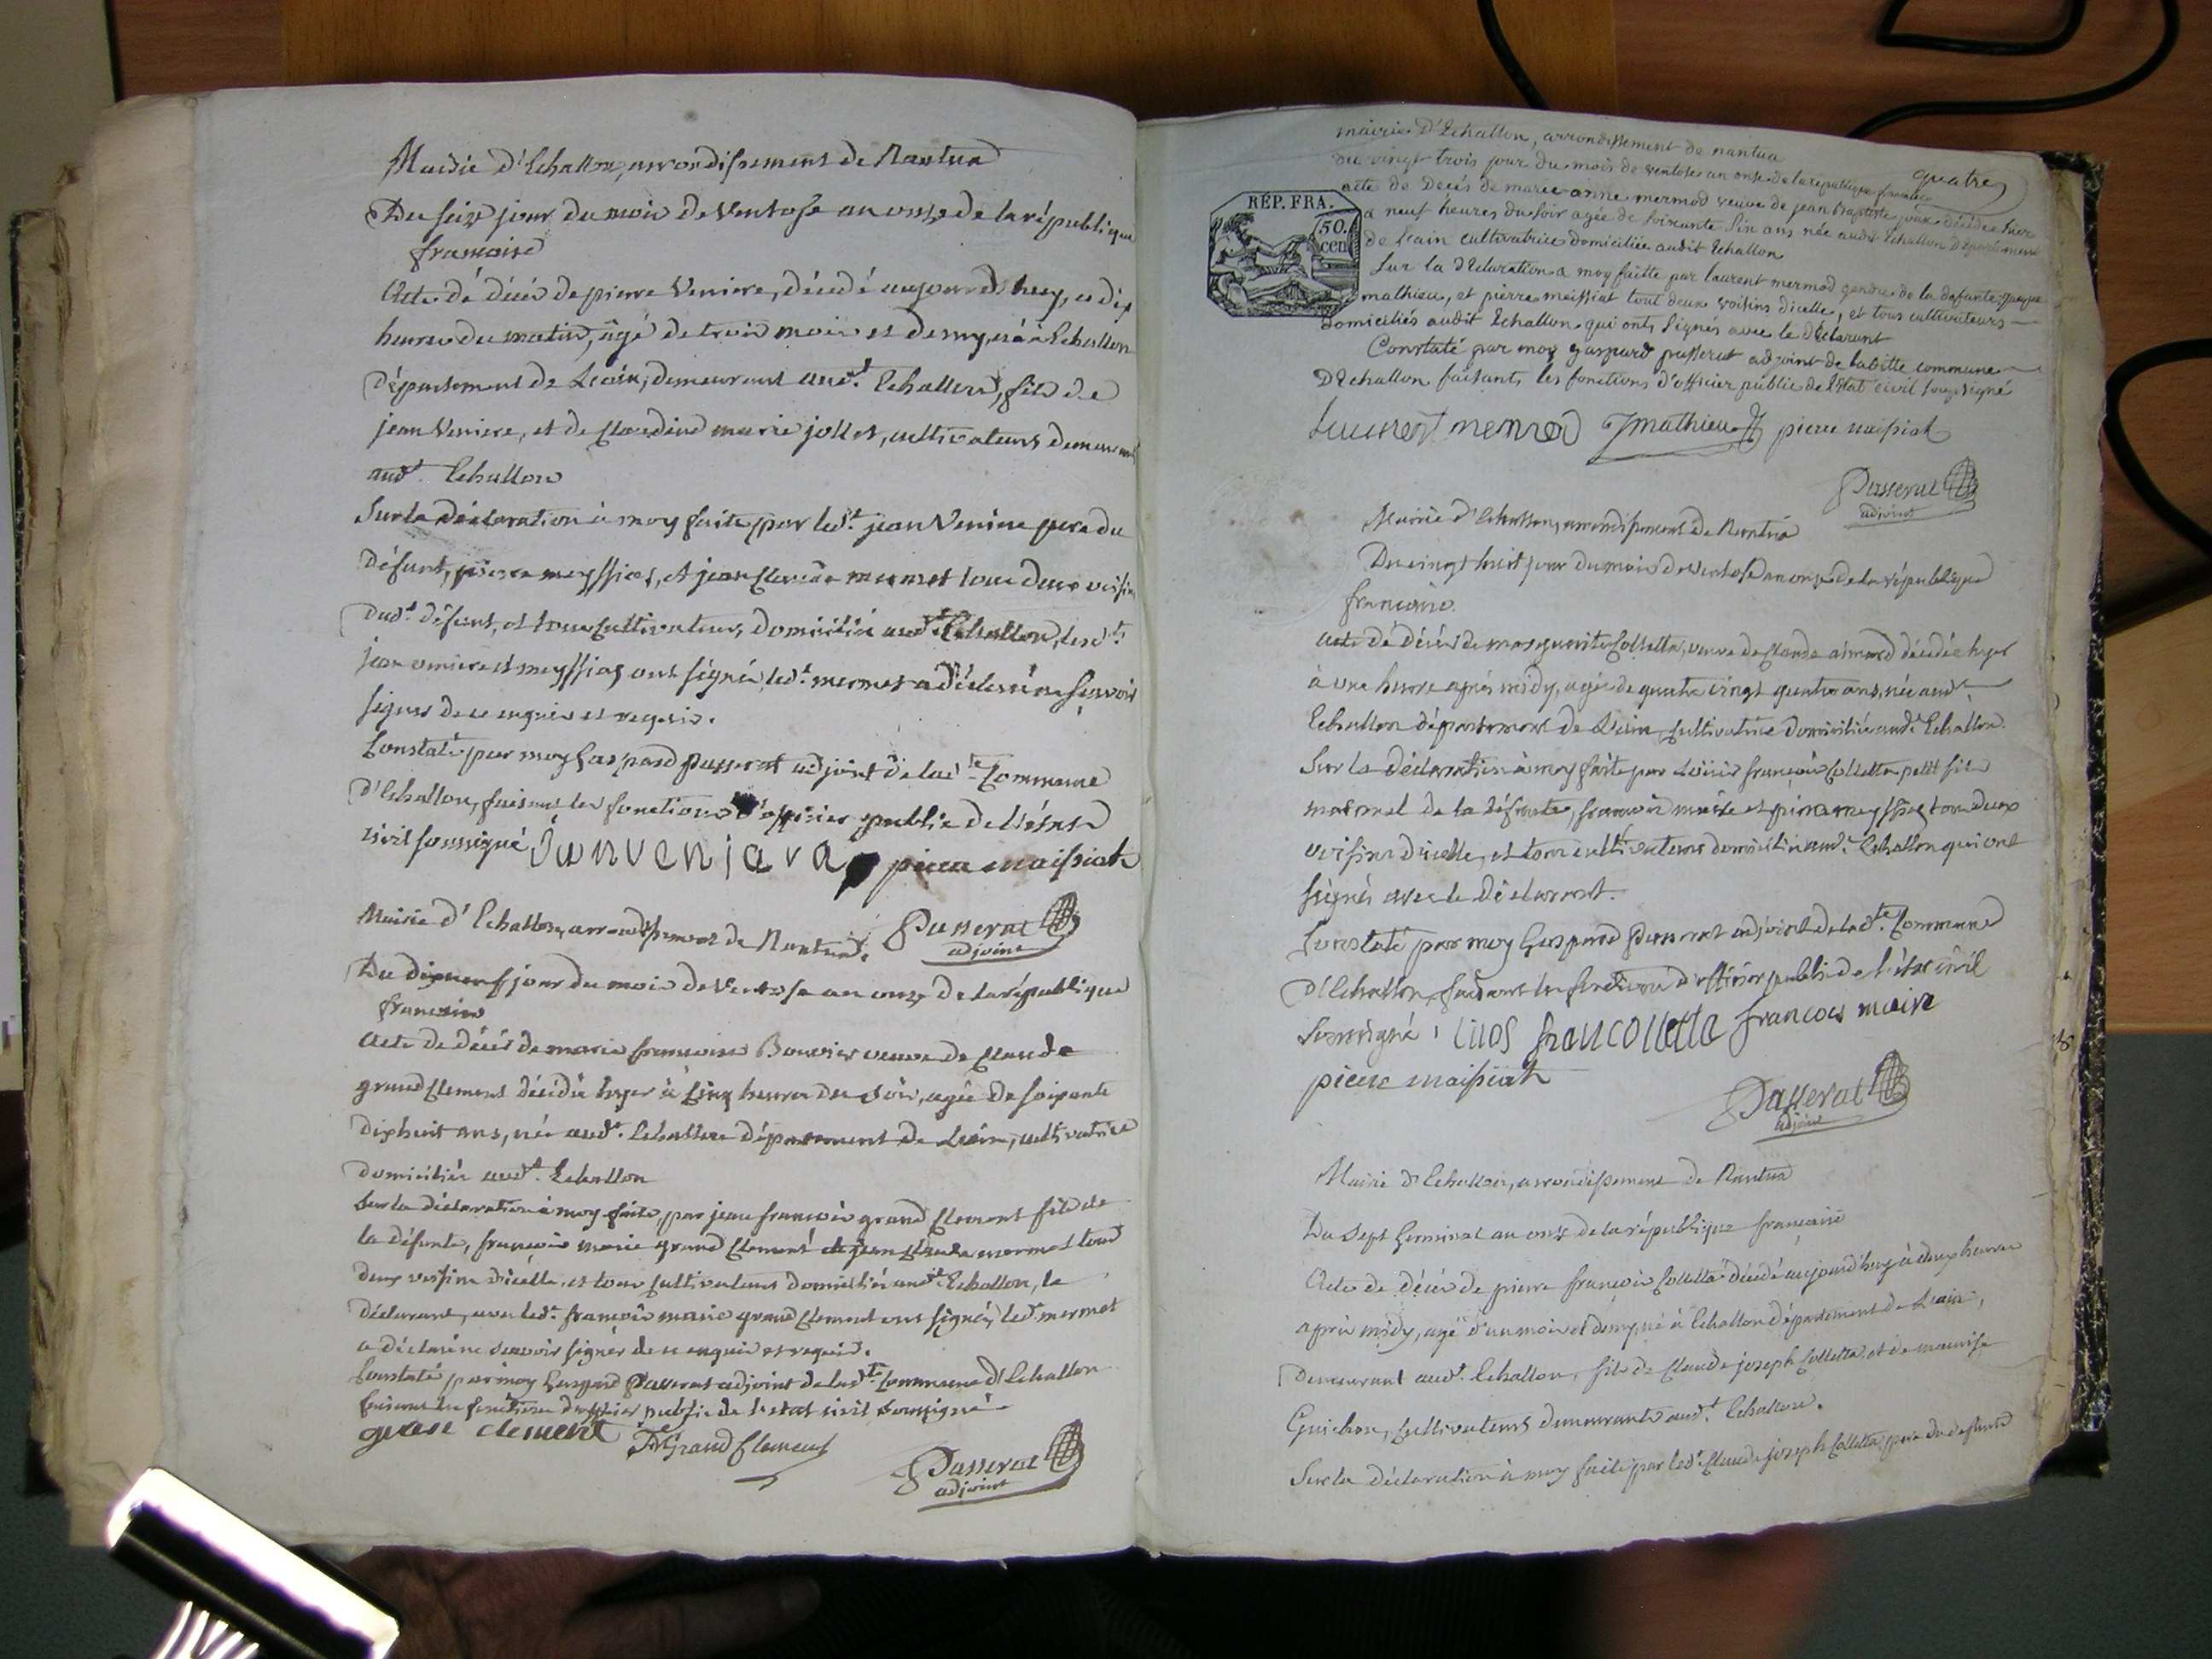 Mairie d'Echallon, arrondissement de Nantua
Du seize jour du mois de Ventose an onze de la république
francaise
Acte de décès de pierre Veniere, décédé aujourd'huy, a dix
heures du matin, âgé de trois mois et demy, né à Echallon
Département de Leain, demeurant aud.t Echallon, fils de
jean Veniere, et de Claudine marie jollet, cultivateurs demeurant
aud.t Echallon
Sur la déclaration à moy faite par led.t jean Veniere pere du
défunt, pierre meyssiat, et jean Claude mermet tous deux voisins
dud.t défunt, et tous Cultivateurs, domiciliés aud.t Echallon, lesd.ts
jean veniere et meyssiat ont signé, led.t mermet a déclaré ne sçavoir
signer de ce enquis et requis.
Constaté par moy Gaspard passerat adjoint de lad.te Commune
d'Echallon, faisant les fonctions d'officier public de l'état
civil soussigné pierre maissiat
Mairie d'Echallon, arrondissement de Nantua. Passerat
adjoint
Du dixneuf jour du mois de Ventose an onze de la république
francaise
Acte de décès de marie francoise Bouvier veuve de Claude
grand Clement décédée hyer à Cinq heures du soir, agée de soixante
dixhuit ans, née aud.t Echallon département de Leain, cultivatrice
domiciliée aud.t Echallon
Sur la déclaration à moy faite, par jean françois grand Clement fils de
la défunte, françois marie grand Clement et jean Claude mermet tous
deux voisins d'icelle, et tous Cultivateurs domiciliés aud.t Echallon, le
déclarant, avec led.t françois marie grand Clement ont signé, led.t mermet
a déclaré ne scavoir signer de ce enquis et requis.
Constaté par moy Gaspard Passerat adjoint de lad.te Commune d'Echallon
faisant les fonctions d'officier public de l'estat civil soussigné
clement Grand Clement
Passerat
adjoint
quatre
mairie D'Echallon, arrondissement de nantua
du vingt trois jour du mois de ventose an onze de la république francaise
acte de Decés de marie anne mermod veuve de jean baptiste décédée hier
RÉP. FRA.
50.
cen
a neuf heures du soir agée de soixante six ans née audit Echallon Département
de leain cultivatrice domiciliée audit Echallon
Sur la déclaration a moy faitte par laurent mermod gendre de la defunte
mathieu, et pierre meissiat tout deux voisins dicelle, et tous cultivateurs
domiciliés audit Echallon qui ont signés avec le Déclarant
Constaté par moy gaspard passerat adjoint de laditte commune
D'Echallon faisant les fonctions d'officier public de l'Etat civil soussigné
mermod Jmathieu pierre maissiat
Passerat
adjoint
Mairie d'Echallon, arrondissement de Nantua
Du vingt huit jour du mois de Ventose an onze de la république
francaise.
Acte de décès de marguerite Colletta, veuve de Claude aimard décédée hyer
à une heure après midy, agée de quatre vingt quatre ans, née aud.t
Echallon département de Leain, Cultivatrice domiciliée aud.t Echallon.
Sur la déclaration à moy faite par Louis françois Colletta petit fils
maternel de la défunte, francois maire et pierre meyssiat tous deux
voisins d'icelle, et tous cultivateurs domiciliés aud.t Echallon qui ont
signés avec le déclarant.
Constaté par moy Gaspard Passerat adjoint de lad.te Commune
D'Echallon, faisant les fonctions d'officier public de l'état civil
soussigné francolletta francois maire
pierre maissiat
Passerat
adjoint
Mairie d'Echallon, arrondissement de Nantua
Du sept Germinal an onze de la république française
Acte de décès de pierre françois Colletta décédé aujourd'huy à deux heures
après midy, agé d'un mois et demy, né à Echallon département de Leain,
demeurant aud.t Echallon, fils de Claude joseph Colletta et de
Guichon, Cultivateurs demeurants aud.t Echallon.
Sur la déclaration à moy faite par led.t Claude joseph Colletta pere du defunt